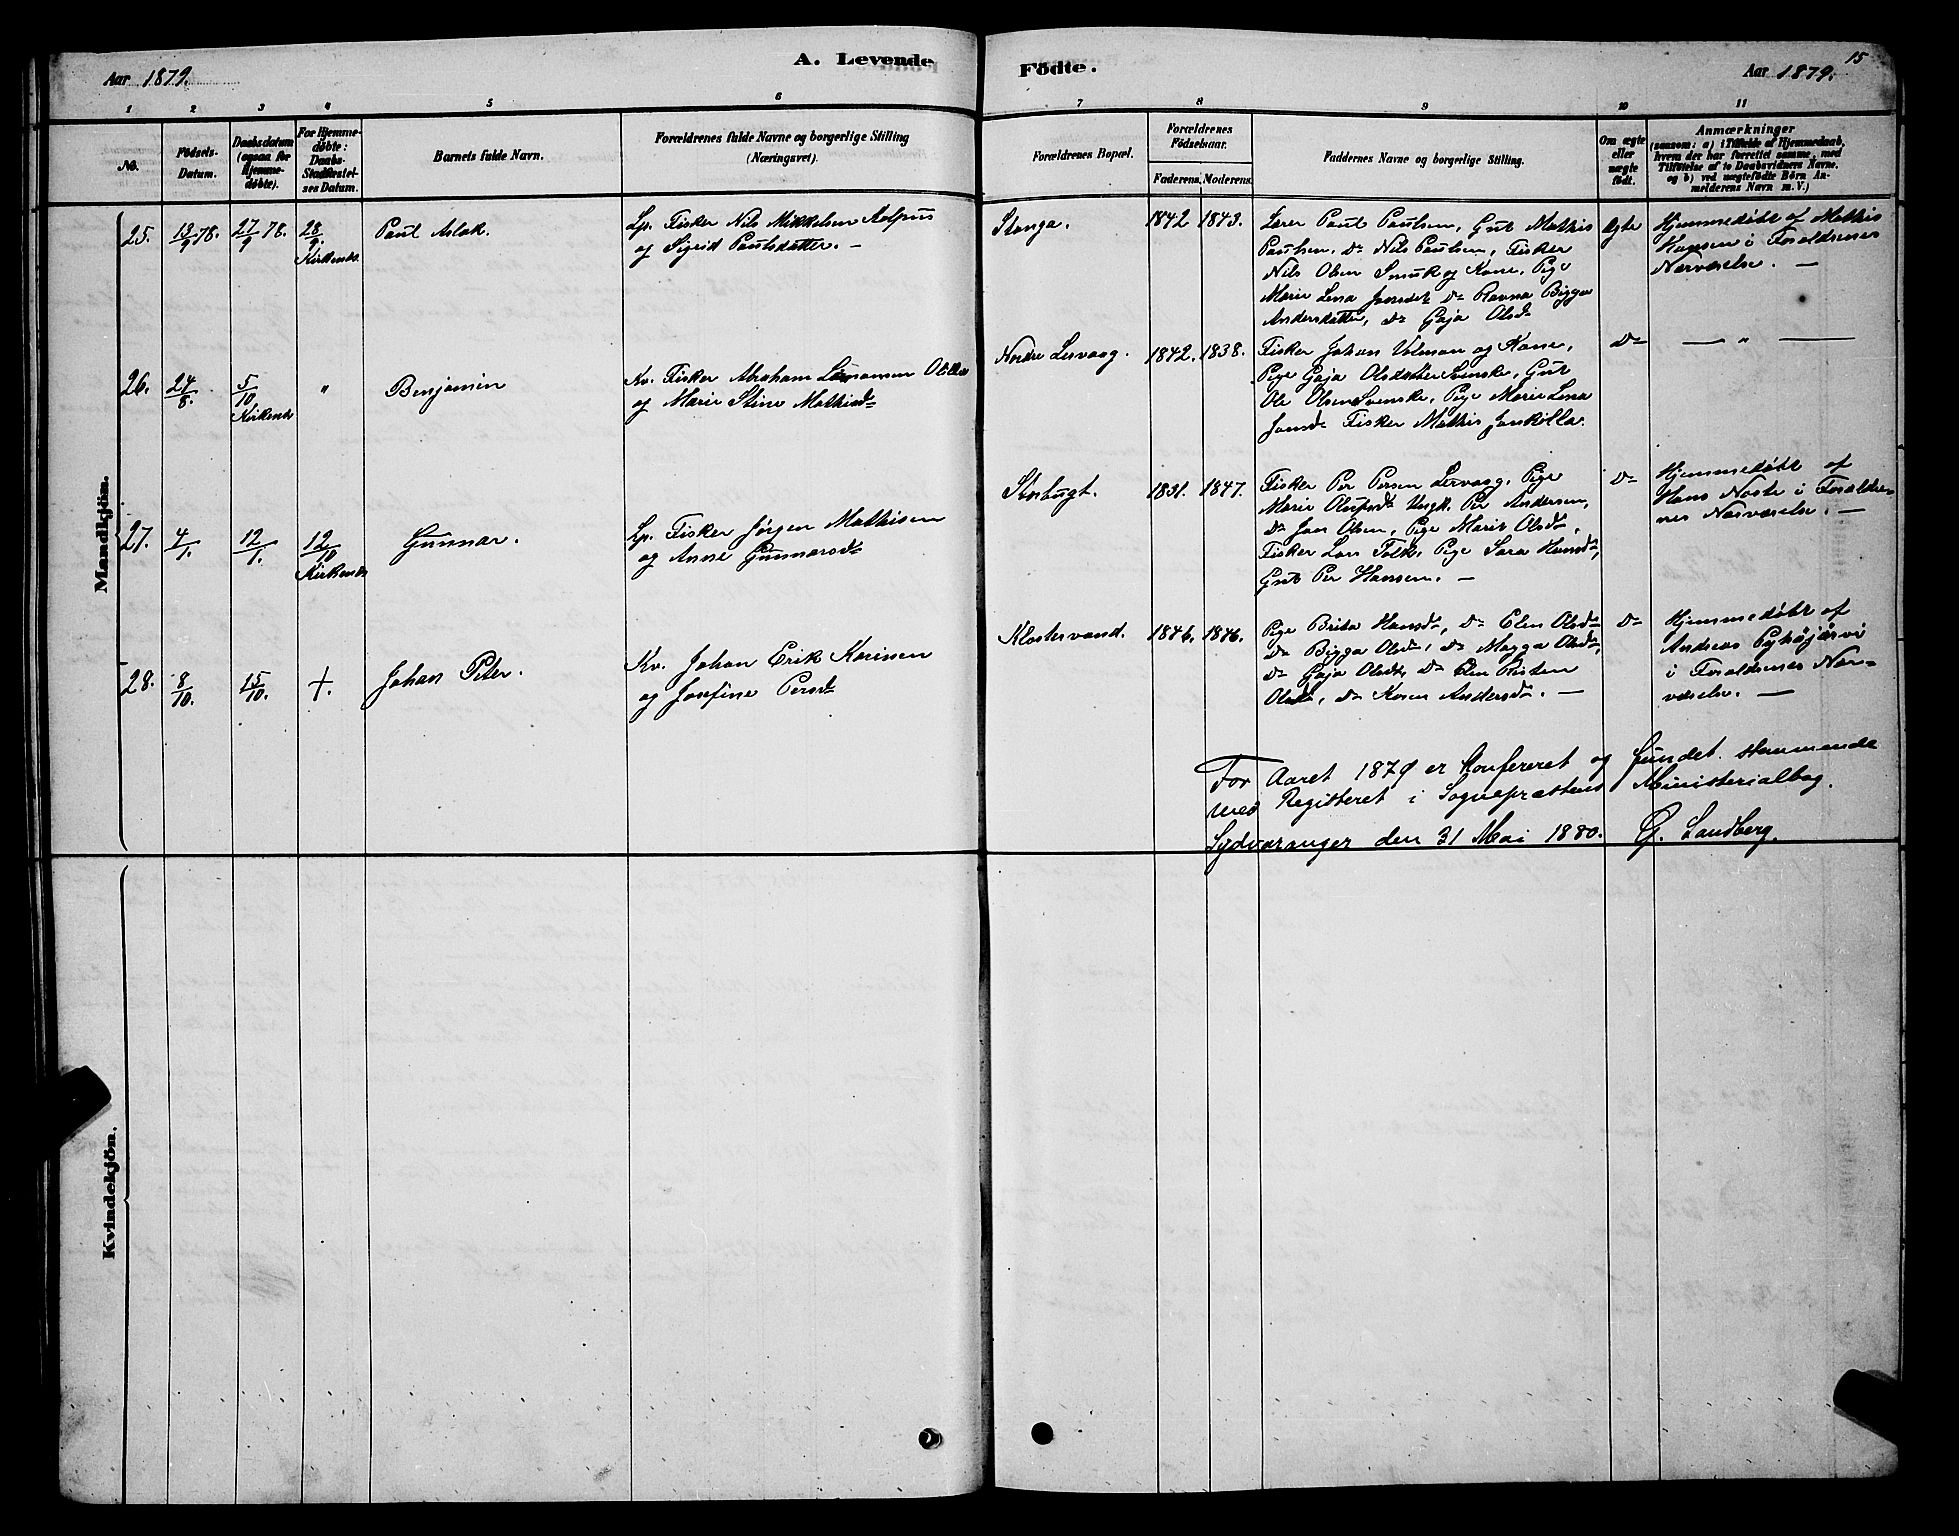 Aar 1879.
A. Levende
Födte.
15
Aar 1879.
1 2 3 4 5 6 7 8 9 10 11
No.
Födsels-
Datum.
Daabsdatum
(ogsaa for
Hjemme-
döbte).
For Hjemme-
döbte:
Daabs-
Stadfæstel-
ses Datum.
Barnets fulde Navn.
Forældrenes fulde Navne og borgerlige Stilling
(Næringsvei).
Forældrenes Bopæl.
Forældrenes
Födselsaar.
Faderens. Moderens.
Faddernes Navne og borgerlige Stilling.
Om ægte
eller
uægte
födt.
Anmærkninger
(saasom: a) i Tilfælde af Hjemmedaab,
hvem der har forrettet samme, med
Tilföielse af to Daabsvidners Navne.
og b) ved uægtefödte Börn An-
melderens Navn m. V.)
Mandkjön.
25. 13/9 78. 27/9 78. 28/9. Kirkenæs.
Paul Aslak.
Lp. Fisker Nils Mikkelsen
og Sigrid Paulsdatter. –
Stanga.
1842 1843.
Lærer Paul Paulsen, Gut Mathis
Paulsen, do Nils Paulsen, Fisker
Nils Olsen Smuk og Kone, Pige
Marie Lena Jonsdtr do Ravna Bigga
Andersdatter, do Gaja Olsdtr
Ægte
Hjemmedöbt af Mathis
Hansen i Forældrenes
Nærværelse. –
26. 24/8. 5/10 Kirkenæs "
Benjamin
Kv. Fisker Abraham
og Marie Stine Mathisdtr
Nordre Lervaag.
1842. 1838.
Fisker Johan Volman og Kone,
Pige Gaja Olsdatter Svenske, Gut
Ole Olsen Svenske, Pige Marie Lena
Jonsdtr Fisker Mathis
do
— " —
27. 4/1. 12/1. 12/10 Kirkenæs
Gunnar.
Lp. Fisker Jörgen Mathisen
og Anne Gunnarsdtr
Storbugt.
1831. 1847.
Fisker Per Persen Lervaag, Pige
Marie Ungk. Per Andersen,
do Jon Olsen, Pige Marit Olsdtr,
Fisker Lars Falk, Pige Sara Hansdtr,
Gut Per Hansen. –
do
Hjemmedöbt af
Hans Noste i Forældre-
nes Nærværelse. –
28. 8/10. 15/10. +.
Johan Peter.
Kv. Johan Erik Karinen
og Josefine Persdtr
Klostervand.
1846. 1846.
Pige Brita Hansdtr, do Elen Olsdtr
do Bigga Olsdtr, do Magga Olsdtr,
do Gaja Olsdtr, do Elen Kirsten
Olsdtr, do Karen Andersdtr. –
do
Hjemmedöbt af
Andreas Pyhäjärvi
i Forældrenes Nær-
værelse. –
For Aaret 1879 er Konfereret og fundet stemmende
med Registeret i Sognepræstens Ministerialbog.
Sydvaranger den 31 Mai 1880. G. Sandberg.
Kvindekjön.